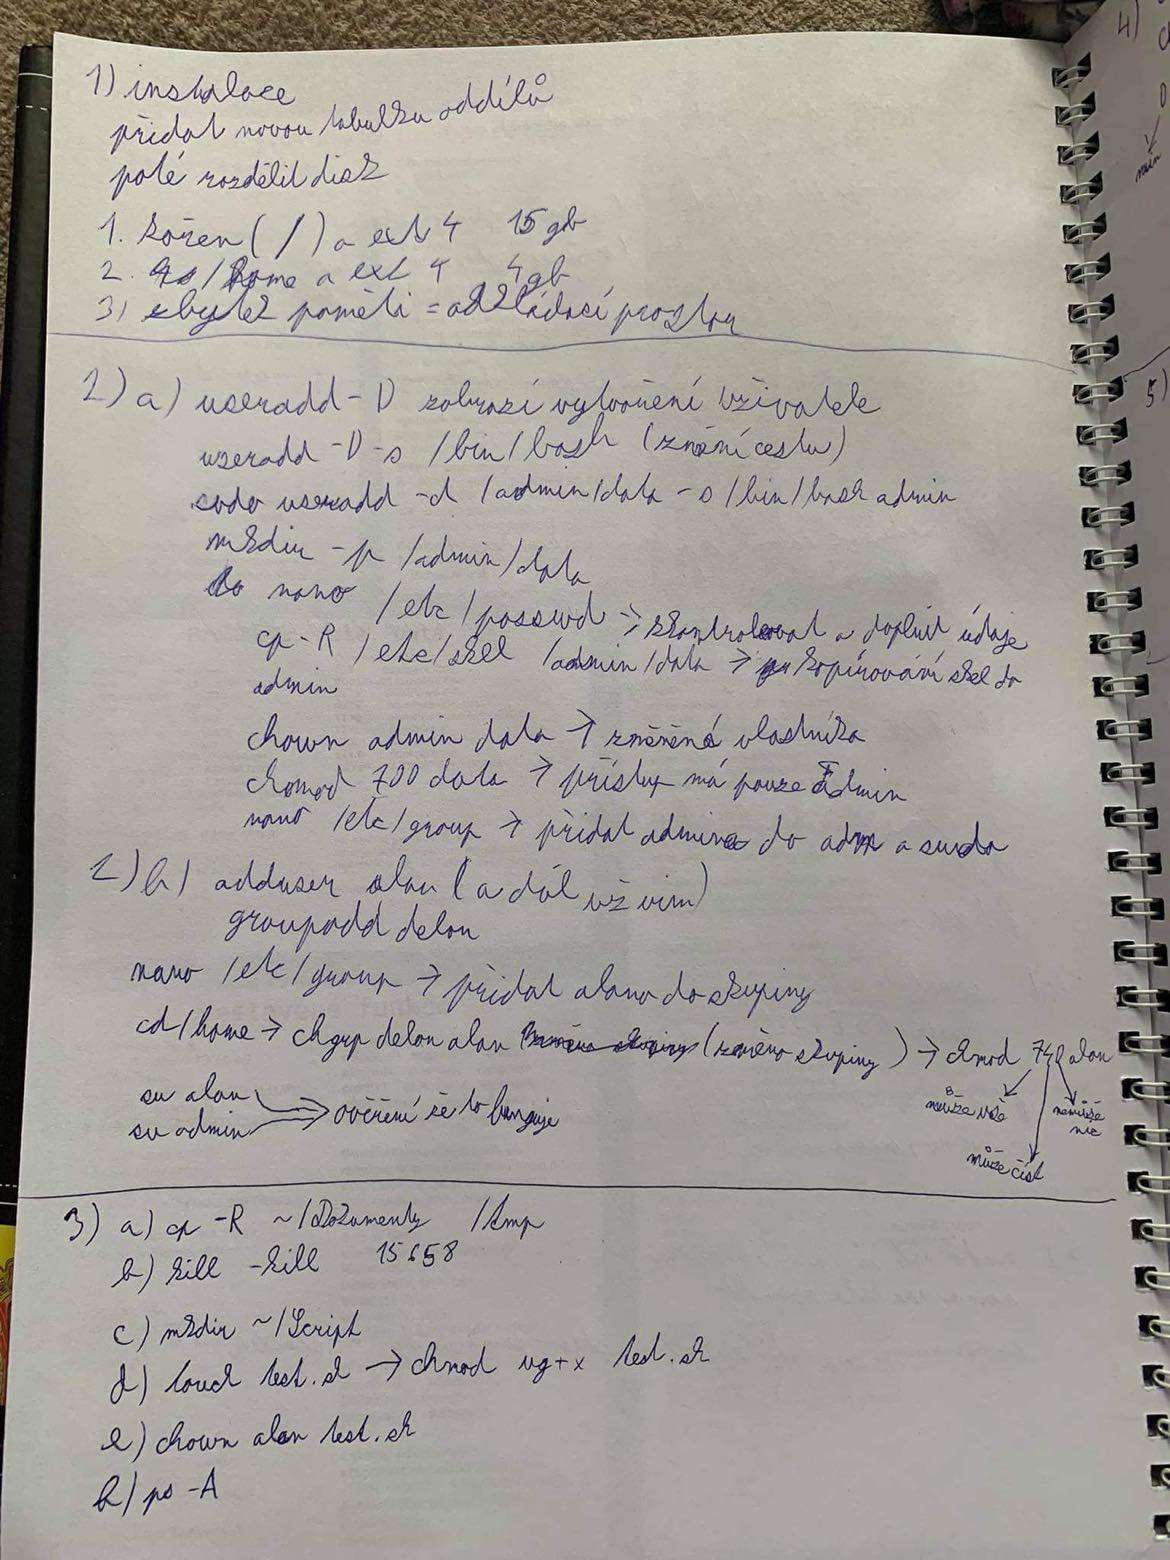 1) instalace
přidat novou tabulku oddílů
poté rozdělit disk
1. kořen ( / ) a ext 4 15 gb
2. /home a ext 4 4gb
3) zbytek paměti = odkládací prostor
2) a) useradd -D zobrazí vytvoření uživatele
useradd -D -s /bin/bash (změní cestu)
sudo useradd -d /admin/data -s /bin/bash admin
mkdir -p /admin/data
nano /etc/passwd → zkontrolovat a doplnit údaje
cp -R /etc/skel /admin/data → kopírování skel do
admin
chown admin data → změněná vlastníka
chomod 700 data → přístup má pouze admin
nano /etc/group → přidat admina do adm a sudo
2) b) adduser alan (a dál už vim)
groupadd delon
nano /etc/group → přidat alana do skupiny
cd /home → chgrp delon alan (změna skupiny) → chmod 740 alan
su alan
su admin → ověření že to funguje
může vše
nemůže
nic
může číst
3) a) cp -R ~/Dokumenty /tmp
b) kill -kill 15658
c) mkdir ~/Script
d) touch test.sh → chmod ug+x test.sh
e) chown alan test.sh
ps -A
4)
5)